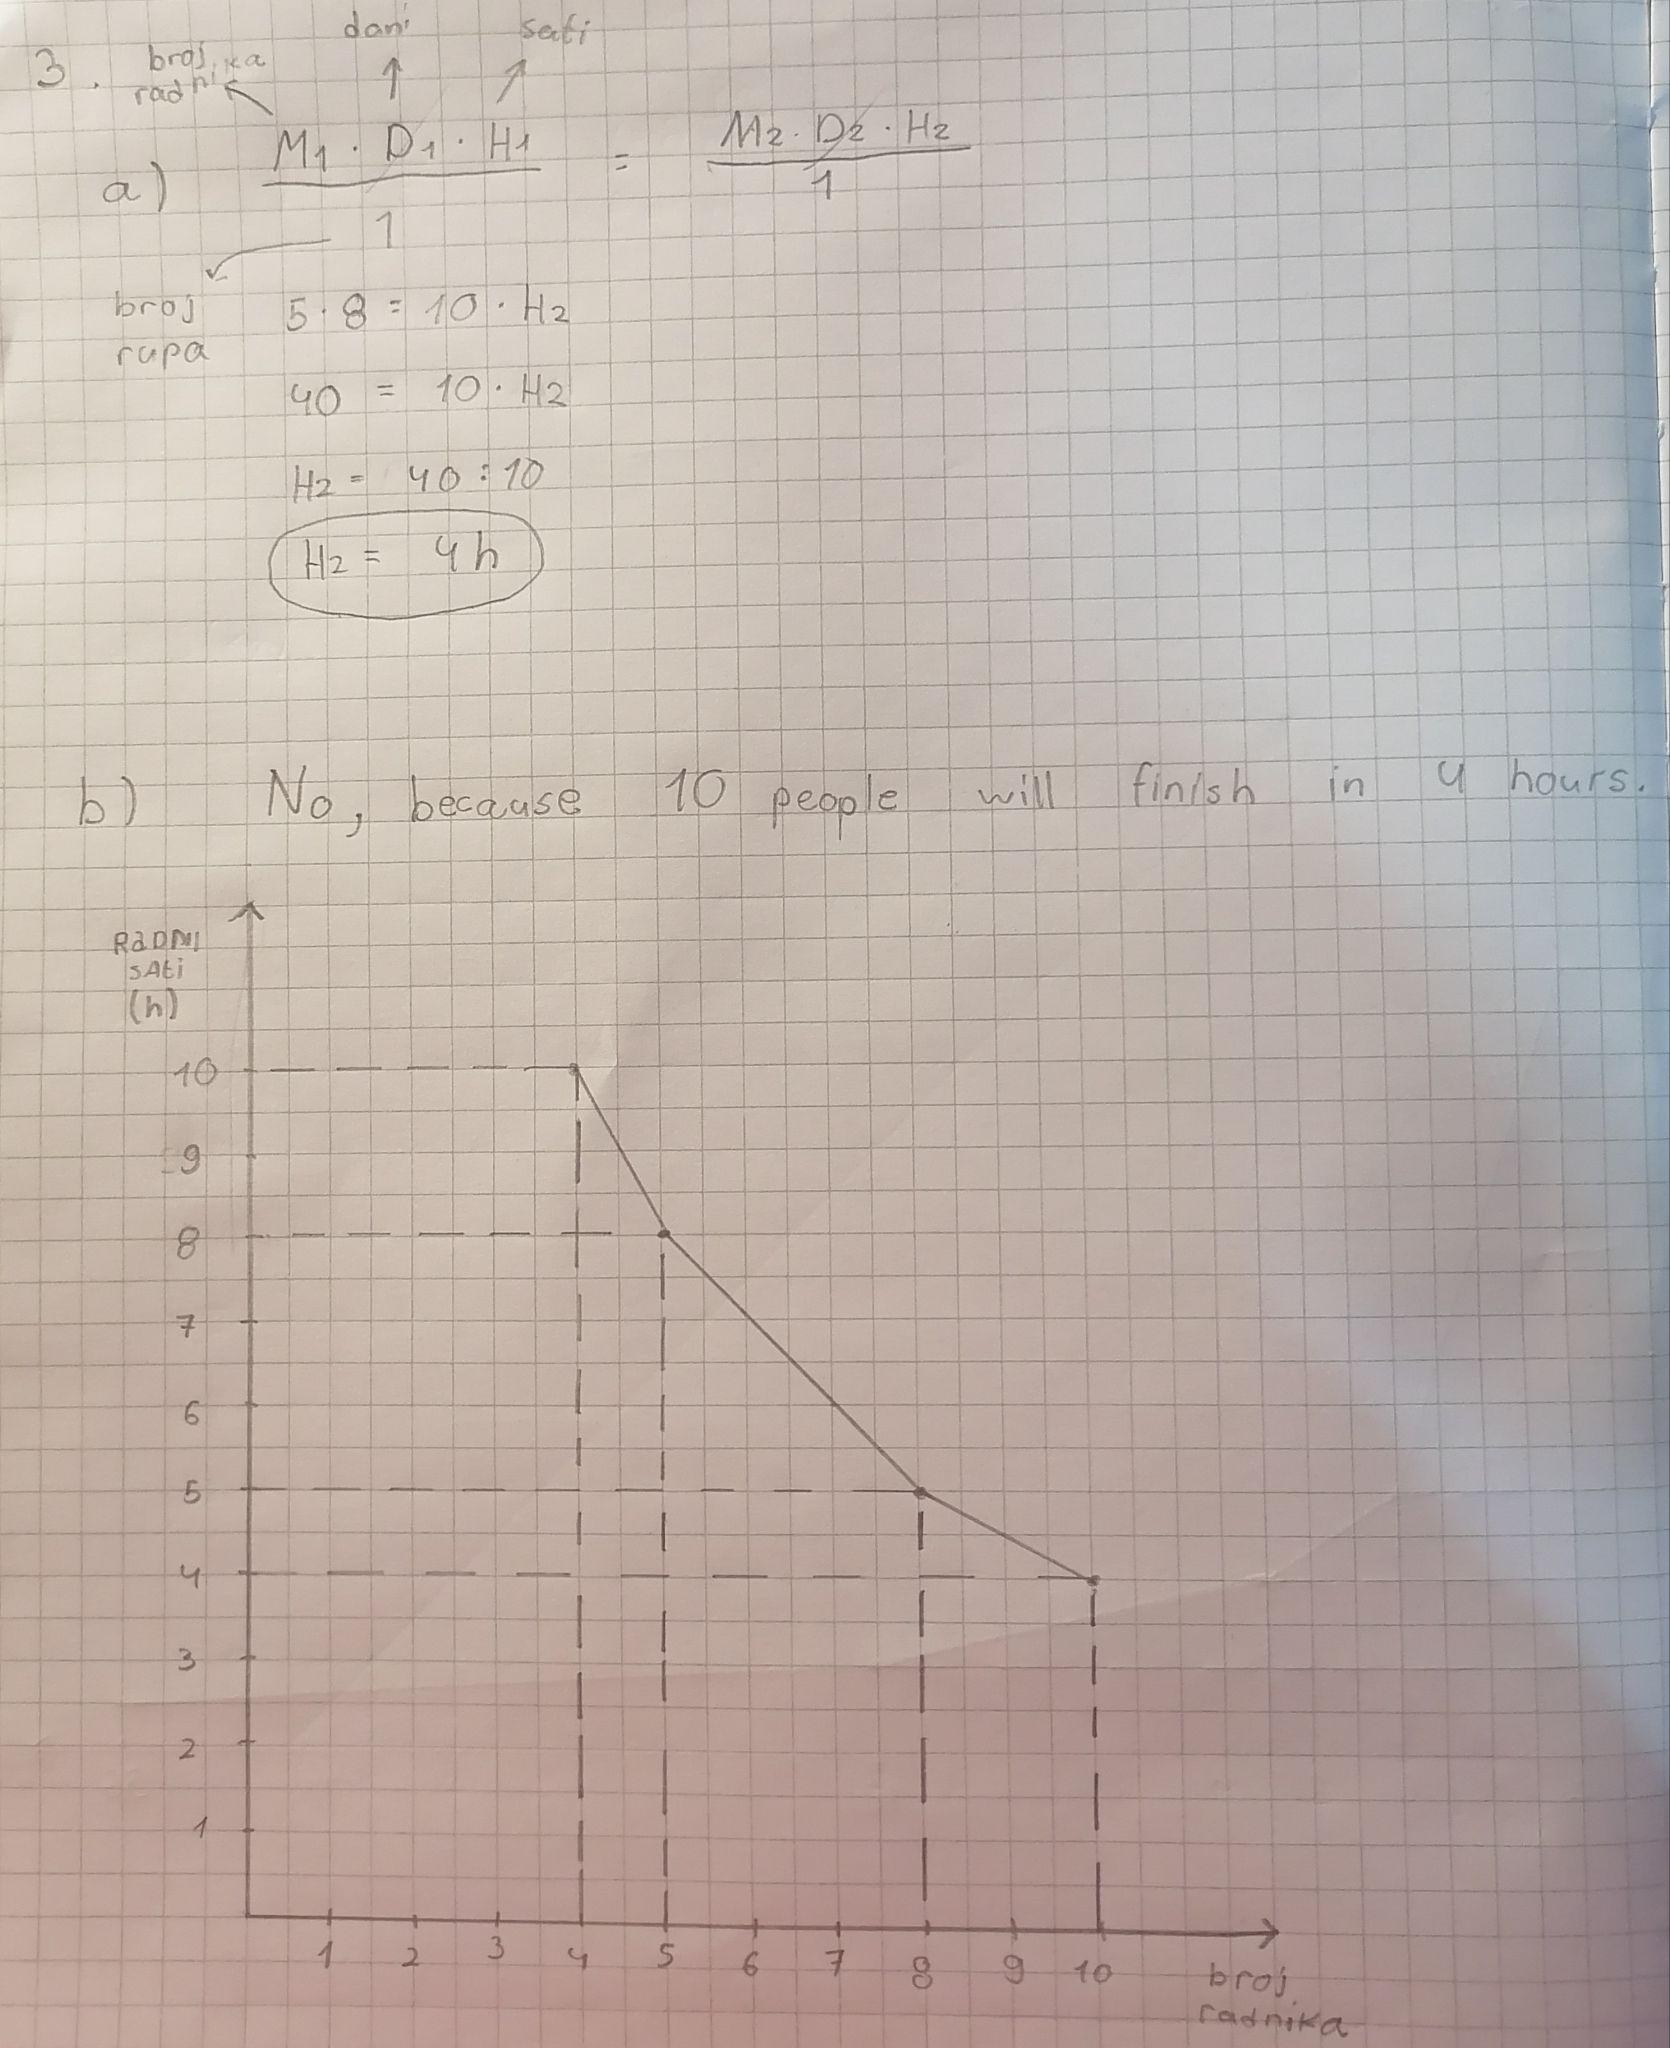 dani sati
3. broj radnika
a) M1 · D1 · H1 = M2 · D2 · H2
1 1
broj rupa
5 · 8 = 10 · H2
40 = 10 · H2
H2 = 40 : 10
H2 = 4h
b) No, because 10 people will finish in 4 hours.
RADNI
SATi
(h)
10
9
8
7
6
5
4
3
2
1
1 2 3 4 5 6 7 8 9 10 broj
radnika